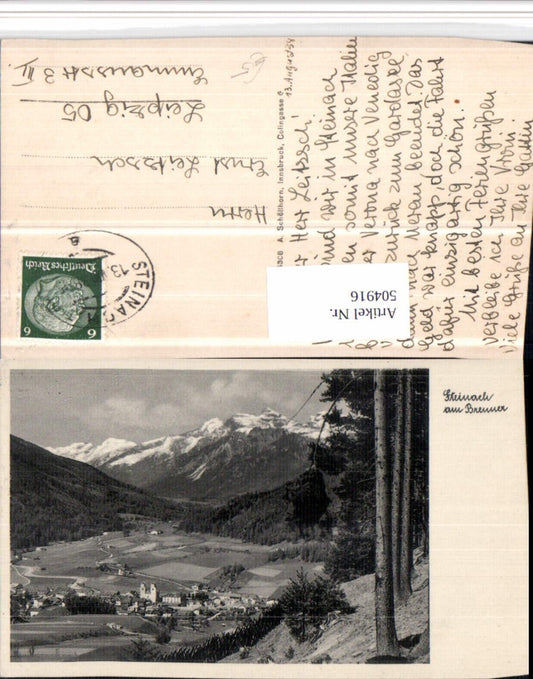 13. Aug. 1938
r Herr Leitzsch!
sind wir in Steinach
en somit unsere Italien
er Verona nach Venedig
zurück zum Gardasee
dann nach Meran beendet. Das
Geld war knapp, doch die Fahrt
dafür einzigartig schön.
Mit besten Feriengrüßen
verbleibe ich Ihre
Viele Grüße an Ihre Gattin
A. Schöllhorn, Innsbruck, Colingasse 6
Herrn
Ernst Leitzsch
Leipzig O5
Emmausstr 3 II
Deutsches Reich
6 6
STEINAC
13
Artikel Nr.
504916
Steinach
am Brenner